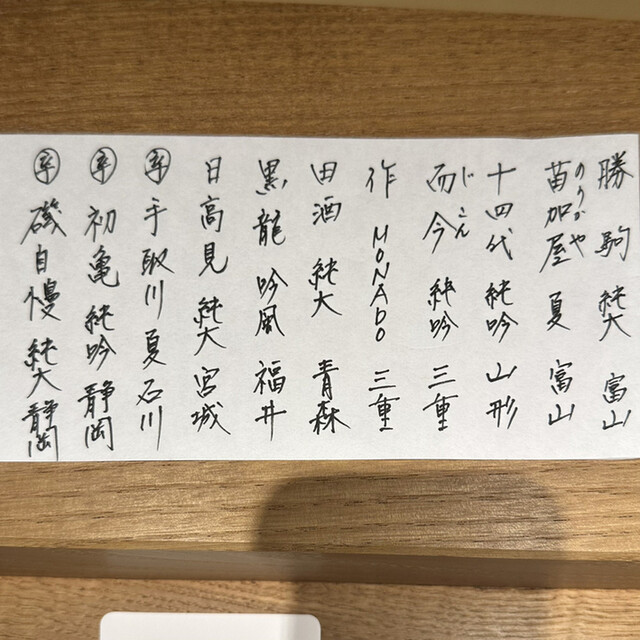 勝駒 純大 富山
苗加屋 夏 富山
のうがや
十四代 純吟 山形
而今 純吟 三重
じこん
作 MONADO 三重
田酒 純大 青森
黒龍 吟風 福井
日高見 純大 宮城
手取川 夏 石川
初亀 純吟 静岡
磯自慢 純大 静岡